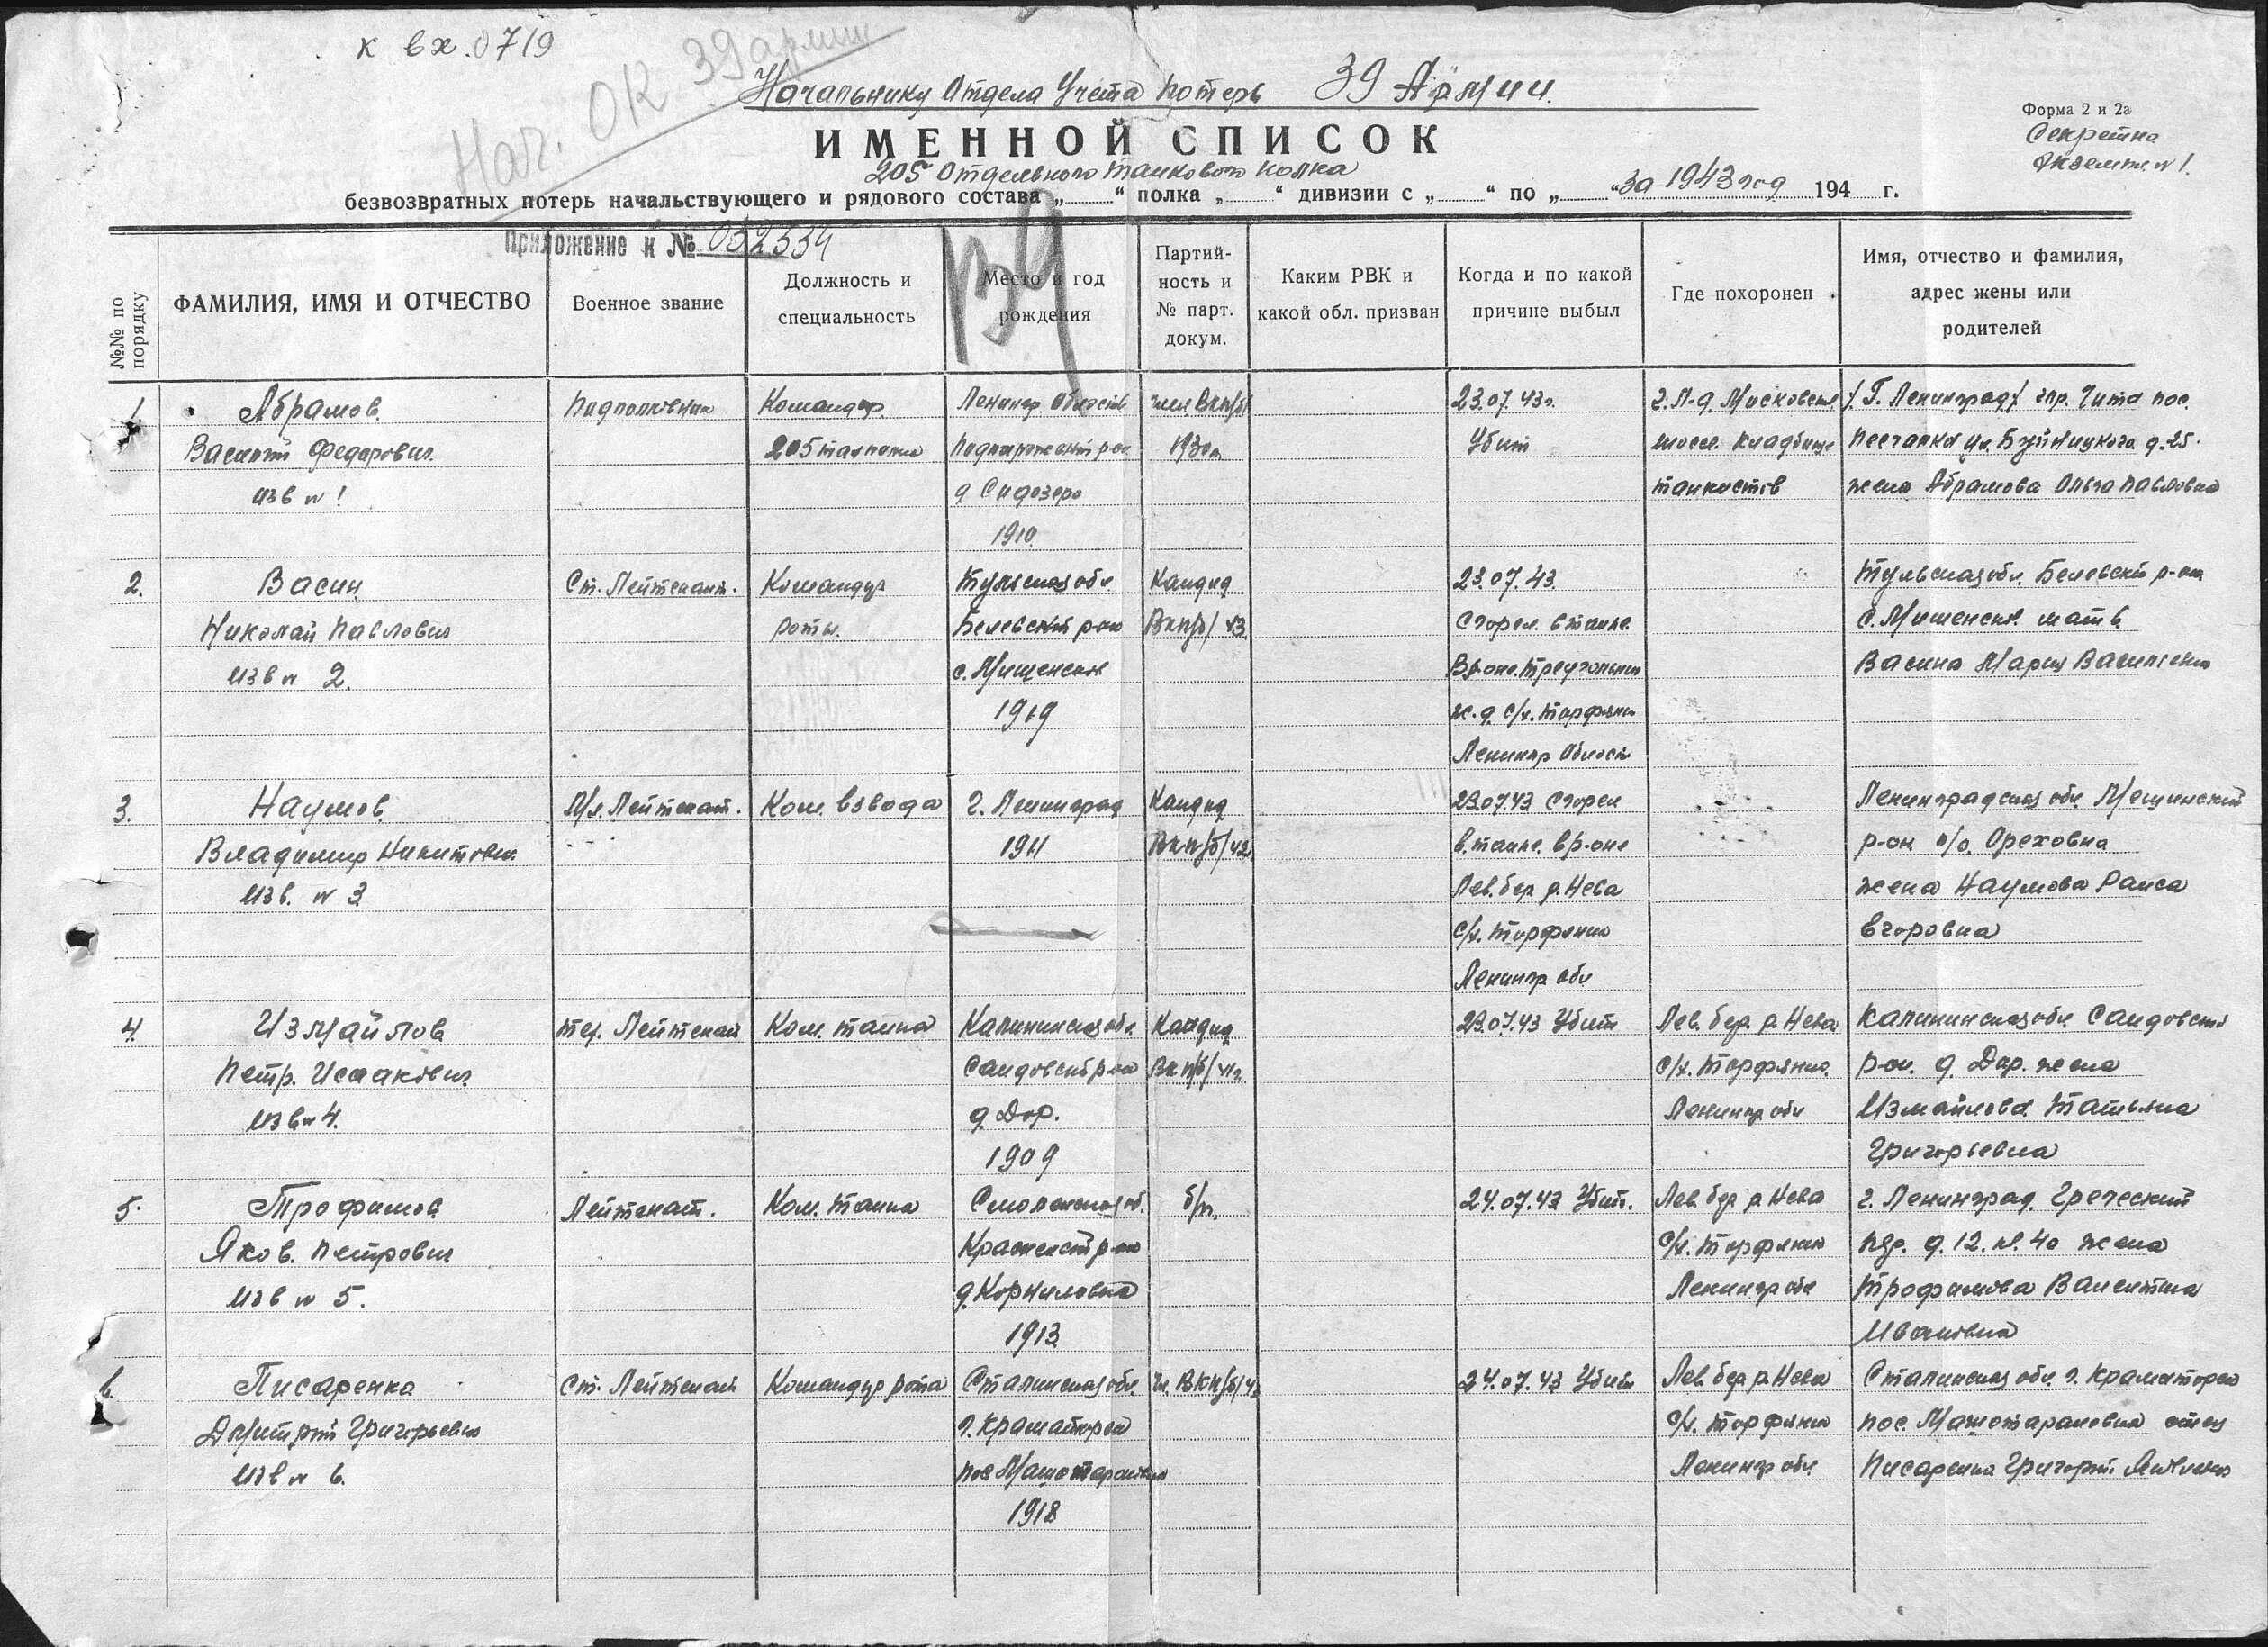 к вх. 0719
Нач. ОК 39 армии
Начальнику Отдела Учета потерь 39 Армии.
Форма 2 и 2а
Секретно
Экземпл. № 1.
ИМЕННОЙ СПИСОК
205 Отдельного танкового полка
безвозвратных потерь начальствующего и рядового состава „ “ полка „ “ дивизии с „ “ по „ “ за 1943 год 194 г.
Приложение к № 052534
№№ по порядку
ФАМИЛИЯ, ИМЯ И ОТЧЕСТВО
Военное звание
Должность и специальность
Место и год рождения
Партийность и № парт. докум.
Каким РВК и какой обл. призван
Когда и по какой причине выбыл
Где похоронен
Имя, отчество и фамилия, адрес жены или родителей
1 Абрамов Подполковник Командир Ленингр. Область член ВКП/б/ 23.07.43г. г. Л-д. Московское /. Г. Ленинград/ гор. Чита пос.
Василий Федорович 205 танк полка Подпорожский р-он 1930г. Убит шоссе. кладбище Песчанка ул. Буйницкого д. 25.
изв № 1 д Сидозеро танкистов жена Абрамова Ольга Павловна
1910.
2. Васин Ст. Лейтенант. Командир Тульская обл. Кандид 23.07.43. Тульская обл. Белевский р-он
Николай Павлович роты. Белевский р-он ВКП/б/ 43 Сгорел в танке. с. Мишенское мать
изв № 2. с. Мишенское В р-оне. треугольник Васина Мария Васильевна
1919 ж.д. с/х. торфяник
Ленингр Область
3. Наумов Мл. Лейтенант. Ком. взвода г. Ленинград Кандид 23.07.43 Сгорел Ленинградская обл. Мгинский
Владимир Никитович 1911 ВКП/б/ 42 в танке. в р-оне р-он п/о. Ореховна
Изв. № 3 Лев. бер. р. Нева жена Наумова Раиса
с/х. торфяник Егоровна
Ленингр обл
4. Измайлов тех. Лейтенант Ком. танка Калининская обл. Кандид 23.07.43 Убит Лев. бер. р. Нева Калининская обл. Сандовский
Петр. Исаакович Сандовский р-он ВКП/б/ 41г. с/х. Торфяник. р-он. д. Дор. жена
Изв № 4. д. Дор. Ленингр обл Измайлова Татьяна
1909 Григорьевна
5. Трофимов Лейтенант. Ком. танка Смоленская об. б/п. 24.07.43 Убит. Лев. бер р. Нева г. Ленинград. Греческий
Яков. Петрович Краснинский р-он с/х. Торфяник пр. д. 12. кв. 40 жена
Изв № 5. д. Корниловка Ленингр обл Трофимова Валентина
1913 Ивановна
6. Писаренко Ст. Лейтенант Командир рота Сталинская обл. чл. ВКП/б/ 24.07.43 Убит Лев. бер р. Нева Сталинская обл. г. Краматорск
Дмитрий Григорьевич г. Краматорск с/х. Торфяник пос. отец
Изв № 6. пос Ленингр обл. Писаренко Григорий
1918